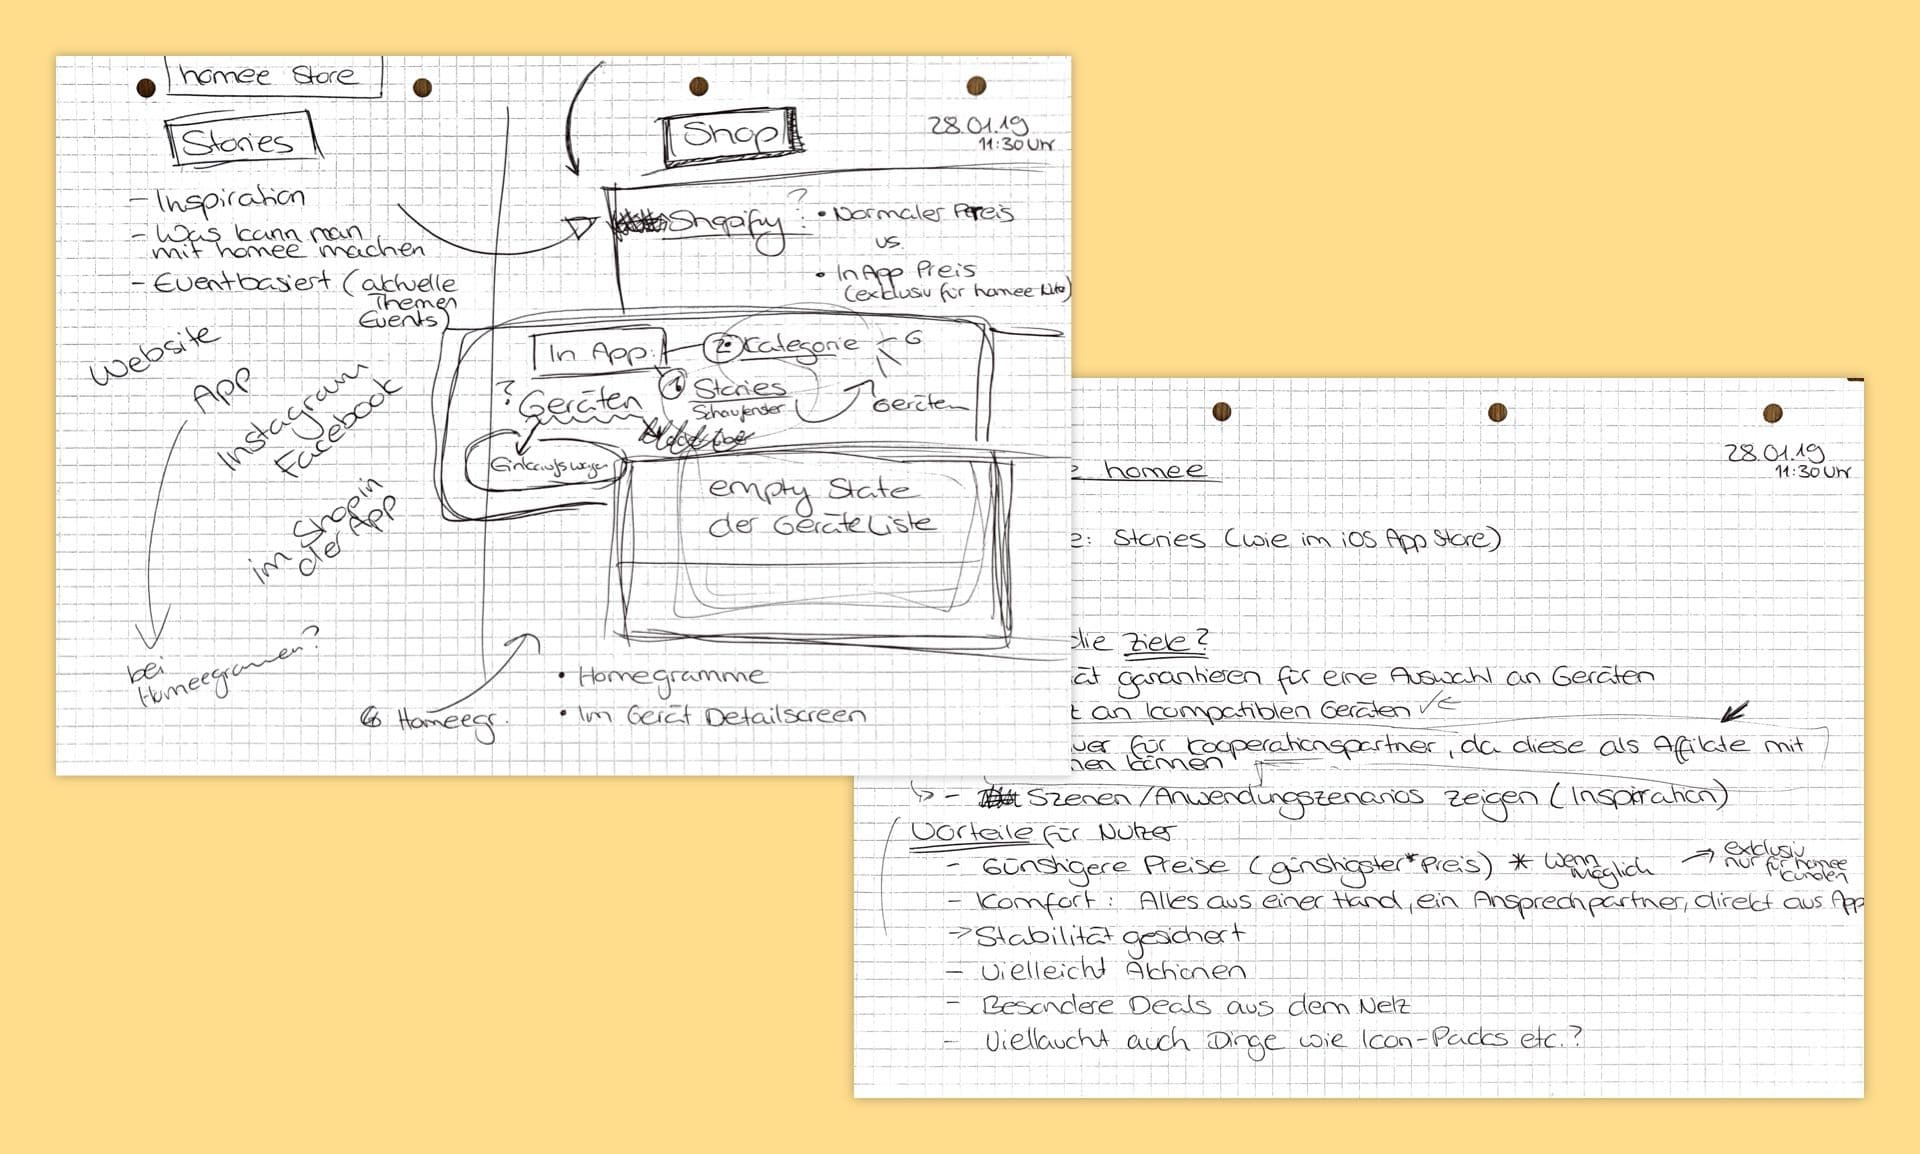 homee Store
Stories
- Inspiration
- Was kann man
mit homee machen
- Eventbasiert (aktuelle
Themen
Events)
Website
App
Instagram
Facebook
im Shop in
der App
bei
Homeegrammen?
Shop
28.01.19
11:30 Uhr
Shopify?
• Normaler Preis
vs.
• In App Preis
(exklusiv für homee
In App
2. Kategorie
G
? Geräten
1 Stories
Schaufenster
Geräten
Einkaufswagen
empty State
der Geräteliste
Homeegr.
• Homegramme
• Im Gerät Detailscreen
homee
28.01.19
11:30 Uhr
e: Stories (wie im iOS App Store)
die Ziele?
ät garantieren für eine Auswahl an Geräten
t an kompatiblen Geräten
für Kooperationspartner, da diese als Affiliate mit
nen können
- Szenen/Anwendungszenarios zeigen (Inspiration)
Vorteile für Nutzer
- Günstigere Preise (günstigster* Preis) * Wenn
möglich
→ exklusiv
nur für homee
Kunden
- Komfort: Alles aus einer Hand, ein Ansprechpartner, direkt aus App
→ Stabilität gesichert
- Vielleicht Aktionen
- Besondere Deals aus dem Netz
- Viellaucht auch Dinge wie Icon-Packs etc.?